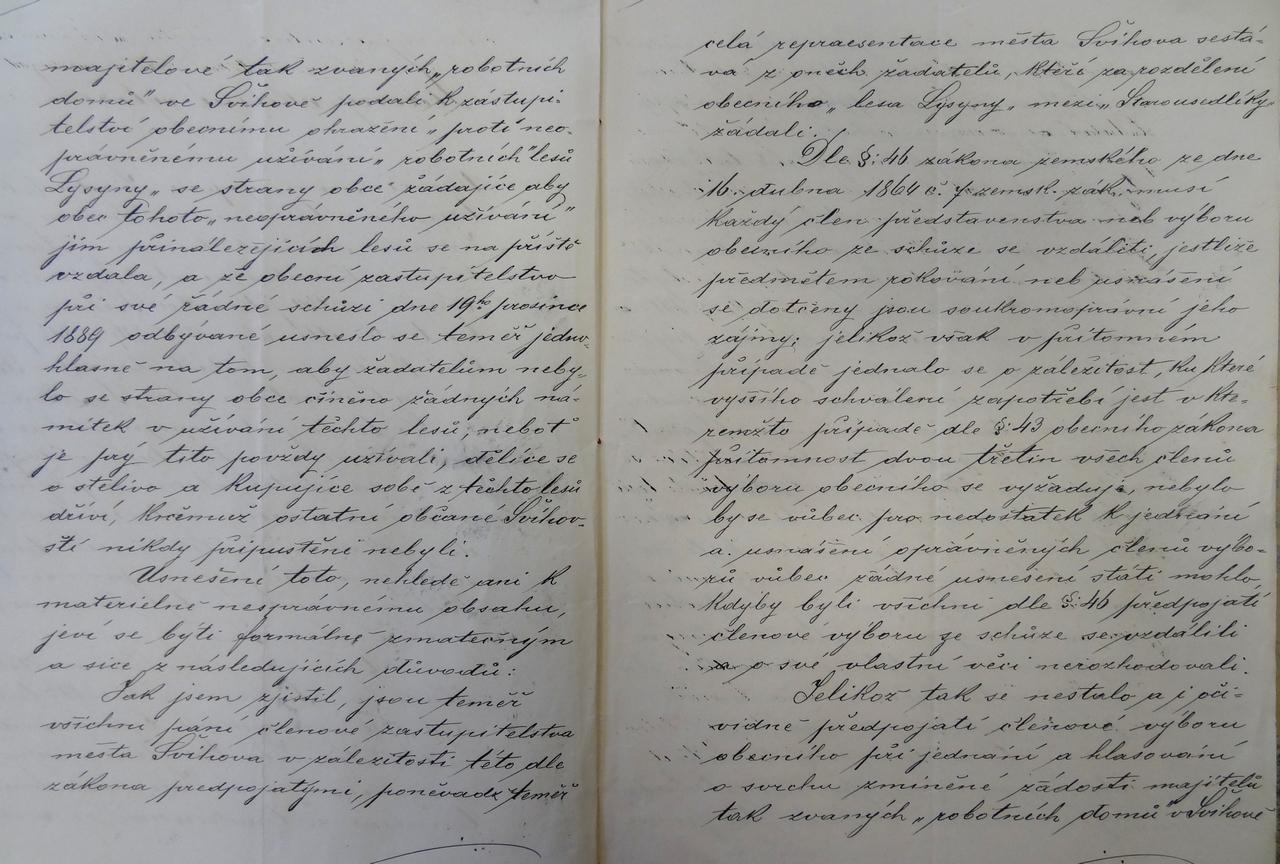 majitelové tak zvaných „robotních
domů" ve Švihově podali k zástupi-
telství obecnímu ohražení „proti neo-
právněnému užívání" robotních lesů
Lysyny„ se strany obce žádajíce aby
obec tohoto „neoprávněného užívání"
jim přináležejících lesů se na příště
vzdala, a že obecní zastupitelstvo
při své řádné schůzi dne 19ho prosince
1889 odbývané usneslo se téměř jedno-
hlasně na tom, aby žadatelům neby-
lo se strany obce činěno žádných ná-
mitek v užívání těchto lesů, neboť
je prý tito povždy užívali, dělíce se
o stelivo a kupujíce sobě z těchto lesů
dříví, k čemuž ostatní občané Švihov-
ští nikdy připuštěni nebyli.
Usnešení toto, nehledě ani k
materielně nesprávnému obsahu,
jeví se býti formálně zmatečným
a sice z následujících důvodů:
Jak jsem zjistil, jsou téměř
všichni páni členové zastupitelstva
města Švihova v záležitosti této dle
zákona předpojatými, poněvadž téměř
celá repraesentace města Švihova sestá-
vá z oněch žadatelů, kteří za rozdělení
obecního „lesa Lysyny„ mezi „Starousedlíky"
žádali.
Dle §: 46 zákona zemského ze dne
16. dubna 1864 č. 7 zemsk. zák. musí
každý člen představenstva neb výboru
obecního ze schůze se vzdáliti, jestliže
předmětem rokování neb usnášení
se dotčeny jsou soukromoprávní jeho
zájmy; jelikož však v přítomném
případě jednalo se o záležitost, ku které
vyššího schválení zapotřebí jest v kte-
rémžto případě dle §: 43 obecního zákona
přítomnost dvou třetin všech členů
výboru obecního se vyžaduje, nebylo
by se vůbec pro nedostatek k jednání
a usnášení oprávněných členů výbo-
rů vůbec žádné usnešení státi mohlo,
kdyby byli všichni dle §: 46 předpojatí
členové výboru ze schůze se vzdálili
a o své vlastní věci nerozhodovali.
Jelikož tak se nestalo a i oči-
vidně předpojatí členové výboru
obecního při jednání a hlasování
o svrchu zmíněné žádosti majitelů
tak zvaných „robotních domů" v Švihově